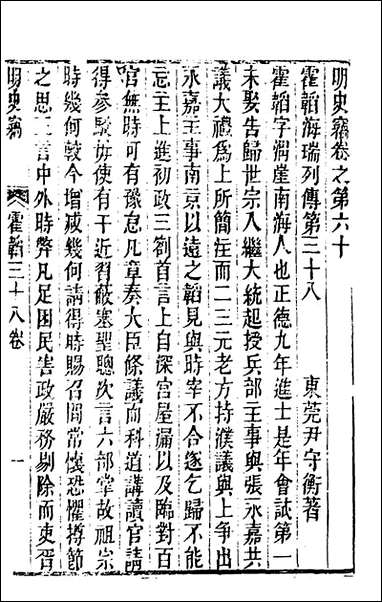 明史竊卷之第六十
霍韜海瑞列傳第三十八
東莞尹守衡著
霍韜字渭崖南海人也正德九年進士是年會試第一
未娶告歸世宗入繼大統起授兵部主事與張永嘉共
議大禮爲上所簡注而二三元老方持濮議與上爭出
永嘉主事南京以遠之韜見與時宰不合遂乞歸不能
忘主上進初政三劄首言上自深宮屋漏以及臨對百
官無時可有豫怠凡章奏大臣條議而科道講讀官請
得參駁毋使有干近習蔽塞聖聰次言六部掌故祖宗
時幾何較今增减幾何請得時賜召問常懷恐懼撙節
之思三言中外時弊凡足困民害政嚴務剔除而吏胥
明史竊
霍韜三十八卷
一